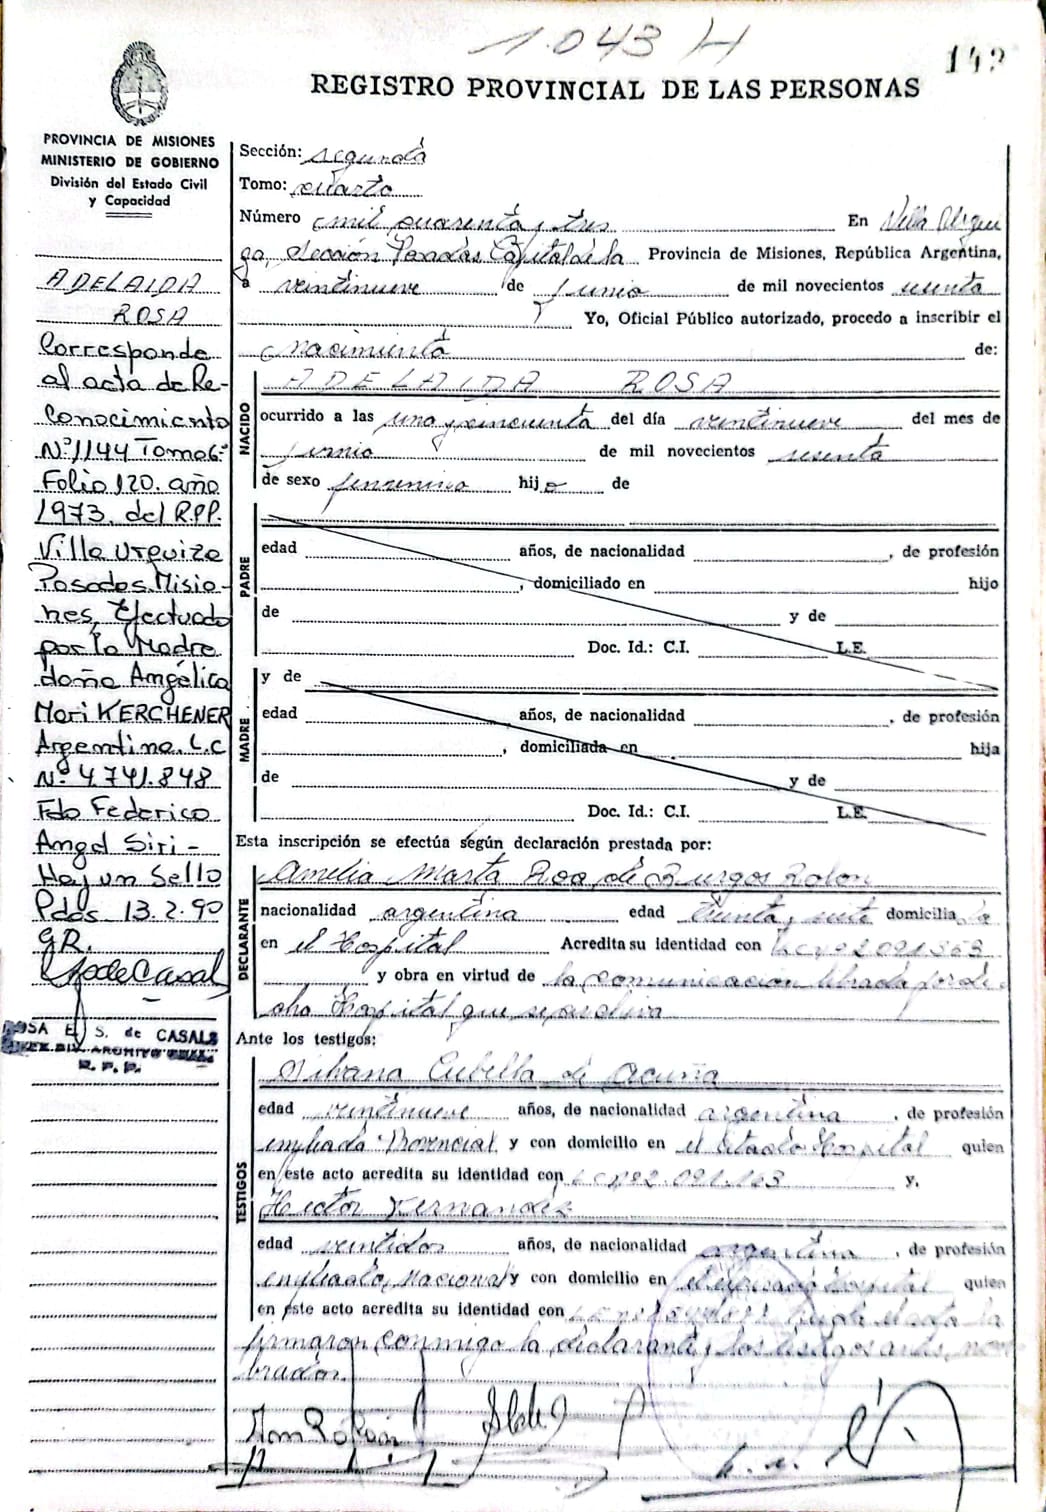 1.043 H
142
REGISTRO PROVINCIAL DE LAS PERSONAS
PROVINCIA DE MISIONES
MINISTERIO DE GOBIERNO
División del Estado Civil
y Capacidad
ADELAIDA
ROSA
Corresponde
al acta de Re-
conocimiento
Nº 1144 Tomo 6º
Folio 120. año
1973. del R.P.P.
Villa Urquiza
Posadas Misio-
nes, Efectuado
por la Madre
doña Angélica
Mari KERCHENER
Argentina. L.C
Nº 4.741.848
Fdo Federico
Angel Siri -
Hay un Sello
Pdas 13.2.90
G.R.
ROSA E. S. de CASALS
R. P. P.
Sección: segunda
Tomo: cuarto
Número mil cuarenta y tres En Villa Urqui
za, Sección Posadas Capital de la Provincia de Misiones, República Argentina,
a veintinueve de junio de mil novecientos sesenta
Yo, Oficial Público autorizado, procedo a inscribir el
nacimiento de:
NACIDO
ADELAIDA ROSA
ocurrido a las una y cincuenta del día veintinueve del mes de
junio de mil novecientos sesenta
de sexo femenino hija de
PADRE
edad años, de nacionalidad , de profesión
, domiciliado en hijo
de y de
Doc. Id.: C.I. L.E.
MADRE
y de
edad años, de nacionalidad , de profesión
, domiciliada en hija
de y de
Doc. Id.: C.I. L.E.
Esta inscripción se efectúa según declaración prestada por:
DECLARANTE
Amelia Marta Roa de Burgos Rolon
nacionalidad argentina edad treinta y siete domicilia da
en el Hospital Acredita su identidad con
y obra en virtud de la comunicación librada por di
cho Hospital que se archiva
Ante los testigos:
TESTIGOS
Silvana Cubella de Acuña
edad veintinueve años, de nacionalidad argentina , de profesión
empleada Provincial y con domicilio en el citado Hospital quien
en este acto acredita su identidad con y.
Hector Fernandez
edad veintidos años, de nacionalidad argentina , de profesión
empleado Nacional y con domicilio en el expresado Hospital quien
en este acto acredita su identidad con leida el acta la
firmaron conmigo la declarante y los testigos antes nom
brados.